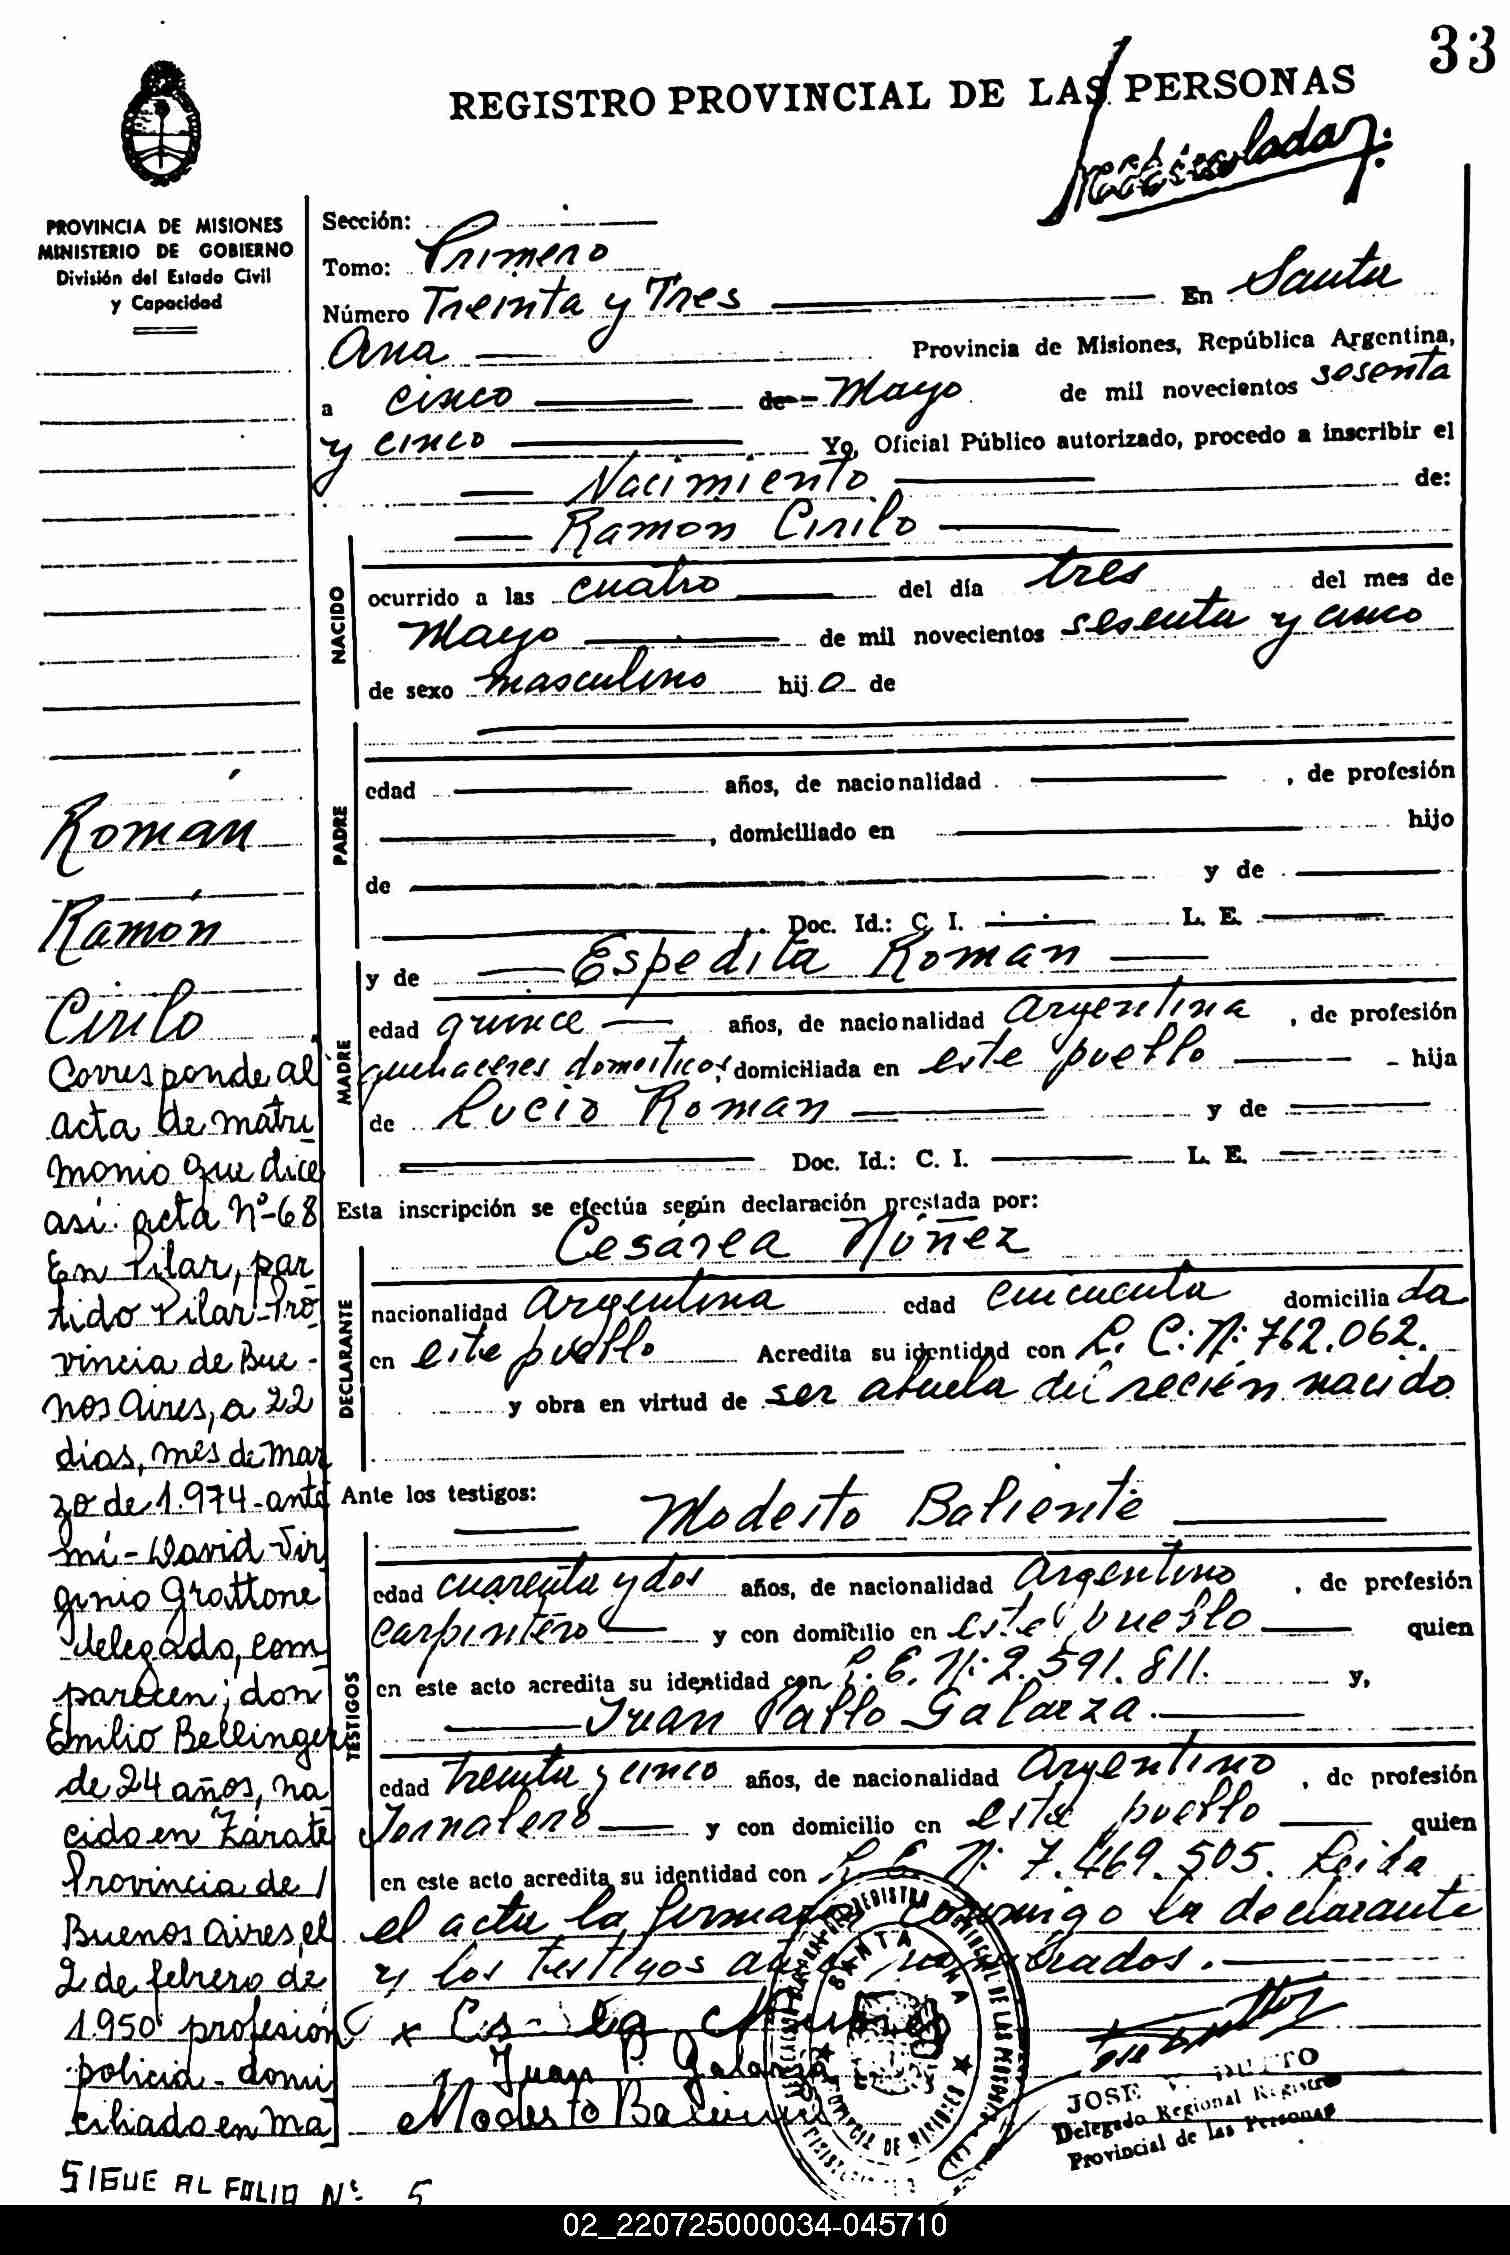 33
REGISTRO PROVINCIAL DE LAS PERSONAS
PROVINCIA DE MISIONES
MINISTERIO DE GOBIERNO
División del Estado Civil
y Capacidad
Sección:
Tomo: Primero
Número Treinta y Tres En Santa
Ana Provincia de Misiones, República Argentina,
a cinco de Mayo de mil novecientos sesenta
y cinco Yo, Oficial Público autorizado, procedo a inscribir el
Nacimiento de:
Ramon Cirilo
NACIDO
ocurrido a las cuatro del día tres del mes de
Mayo de mil novecientos sesenta y cinco
de sexo masculino hijo de
PADRE
edad años, de nacionalidad , de profesión
, domiciliado en hijo
de y de
Doc. Id.: C. I. L. E.
MADRE
y de Espedita Roman
edad quince años, de nacionalidad Argentina , de profesión
quehaceres domesticos, domiciliada en este pueblo hija
de Lucio Roman y de
Doc. Id.: C. I. L. E.
Esta inscripción se efectúa según declaración prestada por:
DECLARANTE
Cesárea Núñez
nacionalidad Argentina edad cincuenta domiciliada
en este pueblo Acredita su identidad con L. C: N: 762.062.
y obra en virtud de ser abuela del recién nacido
Ante los testigos:
TESTIGOS
Modesto Baliente
edad cuarenta y dos años, de nacionalidad Argentino , de profesión
carpintero y con domicilio en este pueblo quien
en este acto acredita su identidad con L. E. N: 2.591.811. y,
Juan Pablo Galarza
edad treinta y cinco años, de nacionalidad Argentino , de profesión
Jornalero y con domicilio en este pueblo quien
en este acto acredita su identidad con L. E. N: 7.469.505. Leida
el acta la firman Conmigo la declarante
y los testigos
Juan P. Galarza
Modesto
JOSE
Delegado Regional Registro
Provincial de las Personas
Román
Ramón
Cirilo
Corresponde al
acta de matri
monio que dice
asi. acta Nº-68
En Pilar, par
tido Pilar-Pro
vincia de Bue-
nos aires, a 22
dias, mes de mar
zo de 1.974-ante
mi-David Vir
ginio Grattone
delegado, com
parecen; don
Emilio Bellinger
de 24 años, na
cido en Zárate
Provincia de
Buenos aires, el
2 de febrero de
1.950 profesión
policia-domi
ciliado en Ma
SIGUE AL FOLIO Nº 5
02_220725000034-045710